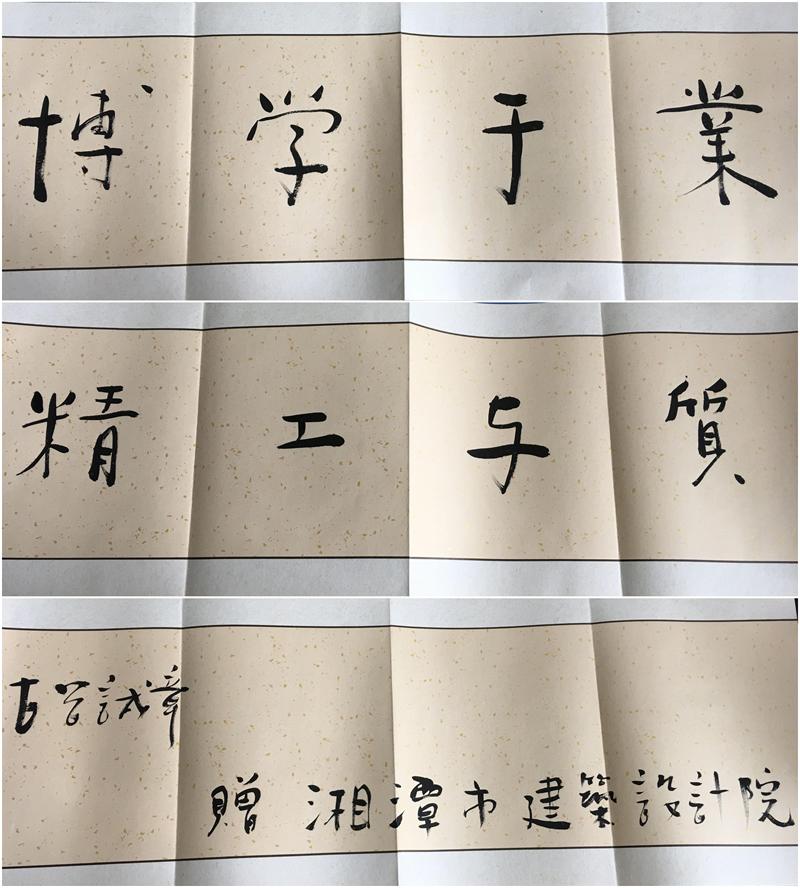 博学于業
精工与質
古谷誠章
贈 湘潭市建築設計院